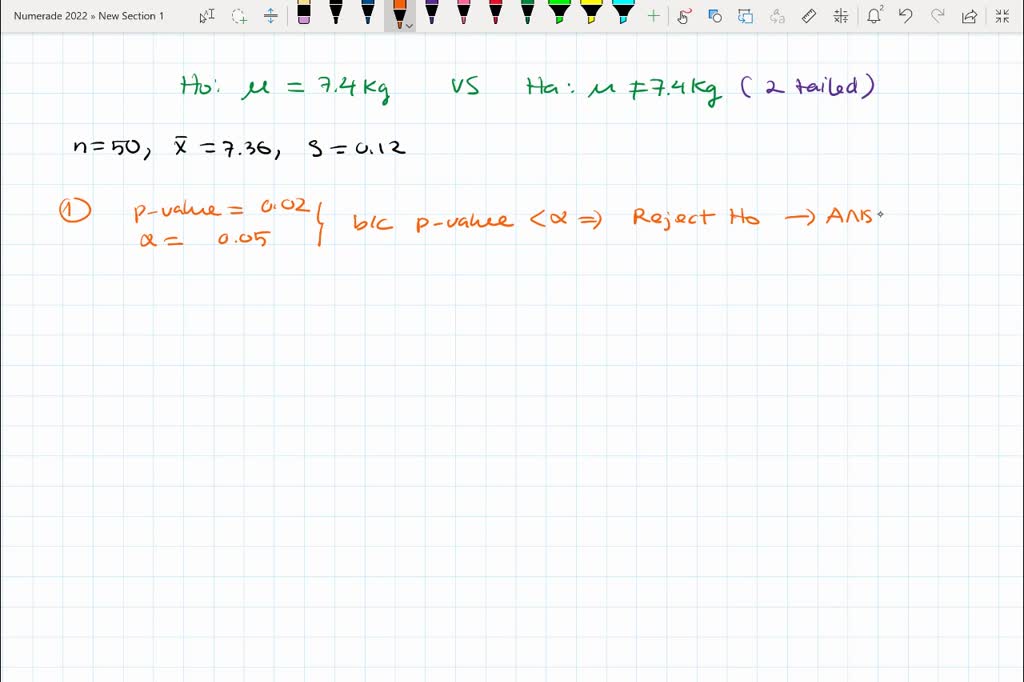 Numerade 2022 » New Section 1
2
Ho: μ = 7.4 kg vs Ha: μ ≠ 7.4 kg (2 tailed)
n=50, x̄ = 7.36, S = 0.12
① p-value = 0.02 } b/c p-value < α ⇒ Reject Ho → Ans
α = 0.05